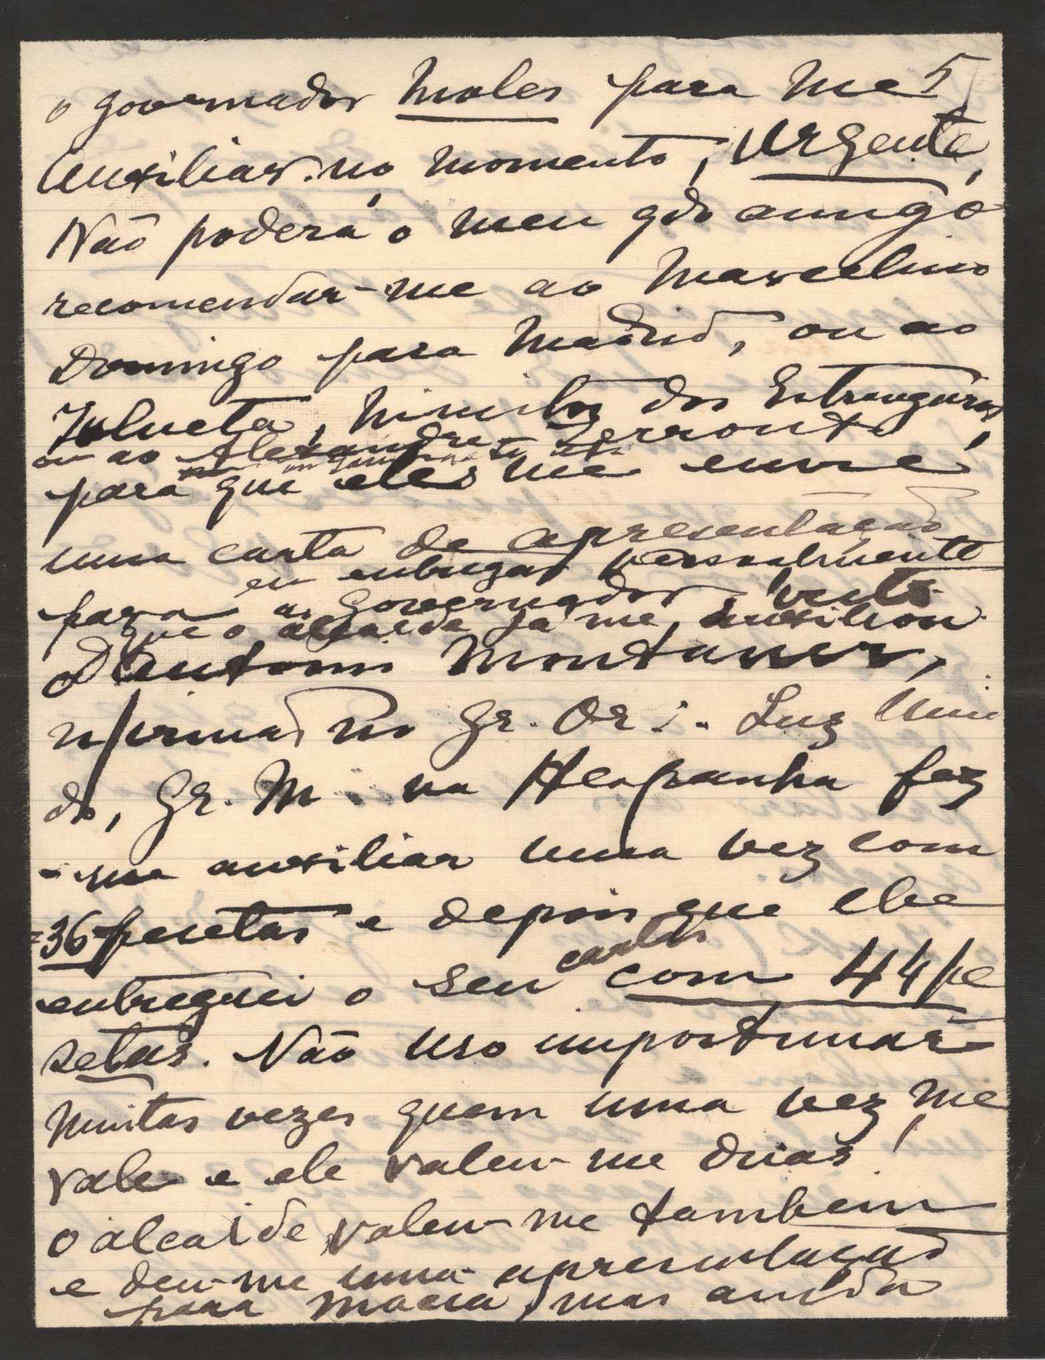 o governador Moles para me 5
auxiliar no momento, Urgente,
Não poderá o meu qdo amigo
recomendar-me ao Marcelino
Domingo para Madrid, ou ao
Zulueta, Ministro dos Estrangeiros,
ou ao Alexandre Lerroux
para que eles me envie
uma carta de apresentação
eu entregar pessoalmente
para ao governador, visto
que o alcaide já me auxiliou.
O Antonio Montaner,
no Gr. Or∴ Luz Uni
do, Gr. M∴ na Hespanha fez
-me auxiliar uma vez com
=36 pesetas e depois que lhe
cartão
entreguei o seu com 44 pe
setas. Não uso importunar
muitas vezes quem uma vez me
vale e ele valeu-me duas!
O alcaide valeu-me tambem
e deu-me uma apresentação
para Maciá, mas ainda